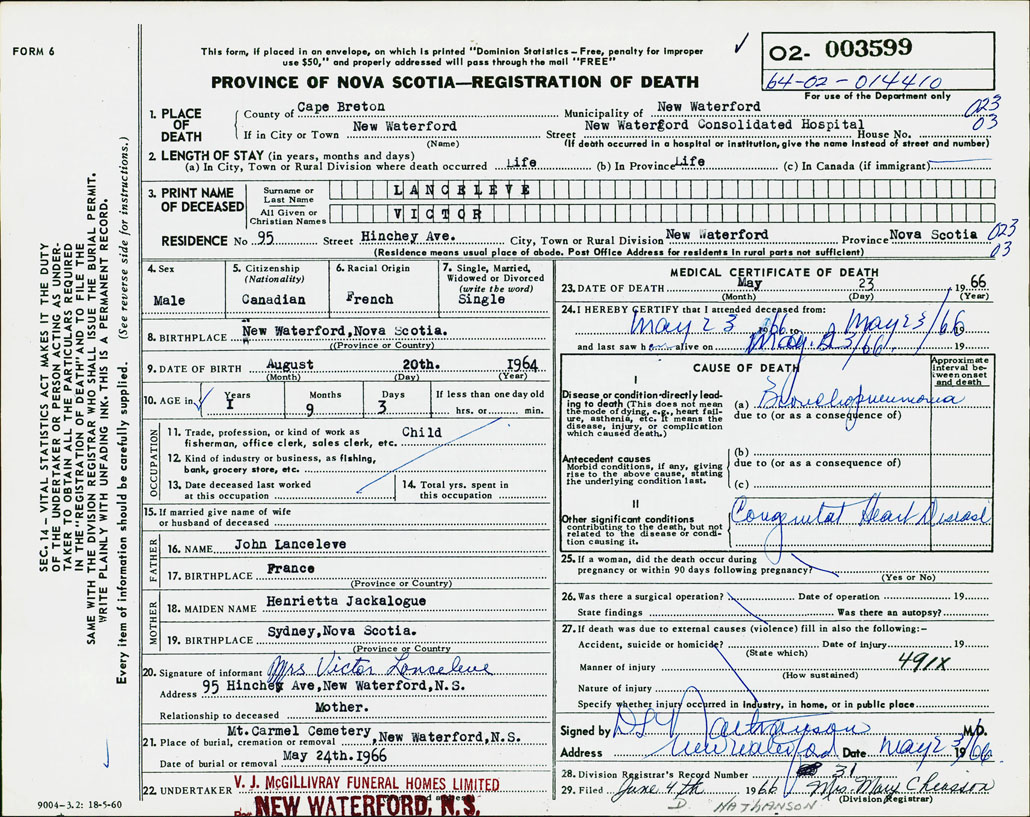 FORM 6
This form, if placed in an envelope, on which is printed "Dominion Statistics – Free, penalty for improper
use $50," and properly addressed will pass through the mail "FREE"
PROVINCE OF NOVA SCOTIA—REGISTRATION OF DEATH
✓
O2- 003599
64-02-014410
For use of the Department only
1. PLACE OF DEATH
County of Cape Breton Municipality of New Waterford 023
If in City or Town New Waterford Street New Waterford Consolidated Hospital House No. 03
(Name) (If death occurred in a hospital or institution, give the name instead of street and number)
2. LENGTH OF STAY (in years, months and days)
(a) In City, Town or Rural Division where death occurred Life (b) In Province Life (c) In Canada (if immigrant)
3. PRINT NAME OF DECEASED
Surname or Last Name LANCELEVE
All Given or Christian Names VICTOR
RESIDENCE No 95 Street Hinchey Ave. City, Town or Rural Division New Waterford Province Nova Scotia 023
03
(Residence means usual place of abode. Post Office Address for residents in rural parts not sufficient)
4. Sex
Male
5. Citizenship
(Nationality)
Canadian
6. Racial Origin
French
7. Single, Married,
Widowed or Divorced
(write the word)
Single
8. BIRTHPLACE New Waterford,Nova Scotia.
(Province or Country)
9. DATE OF BIRTH August 20th. 1964
(Month) (Day) (Year)
10. AGE in Years Months Days If less than one day old
1 9 3 hrs. or min.
OCCUPATION
11. Trade, profession, or kind of work as Child
fisherman, office clerk, sales clerk, etc.
12. Kind of industry or business, as fishing,
bank, grocery store, etc.
13. Date deceased last worked
at this occupation
14. Total yrs. spent in
this occupation
15. If married give name of wife
or husband of deceased
FATHER
16. NAME John Lanceleve
17. BIRTHPLACE France
(Province or Country)
MOTHER
18. MAIDEN NAME Henrietta Jackalogue
19. BIRTHPLACE Sydney,Nova Scotia.
(Province or Country)
20. Signature of informant Mrs Victor Lanceleve
Address 95 Hinchey Ave,New Waterford,N.S.
Relationship to deceased Mother.
21. Place of burial, cremation or removal Mt.Carmel Cemetery,New Waterford,N.S.
Date of burial or removal May 24th.1966
22. UNDERTAKER V. J. McGILLIVRAY FUNERAL HOMES LIMITED
NEW WATERFORD, N.S.
MEDICAL CERTIFICATE OF DEATH
23. DATE OF DEATH May 23 1966
(Month) (Day) (Year)
24. I HEREBY CERTIFY that I attended deceased from:
May 23 1966 to May 23/66 19
and last saw h alive on May. 23/66. 19
CAUSE OF DEATH
Approximate
interval be-
tween onset
and death
I
Disease or condition directly lead-
ing to death (This does not mean
the mode of dying, e.g., heart fail-
ure, asthenia, etc. It means the
disease, injury, or complication
which caused death.)
(a) Bronchopneumonia
due to (or as a consequence of)
Antecedent causes
Morbid conditions, if any, giving
rise to the above cause, stating
the underlying condition last.
(b)
due to (or as a consequence of)
(c)
II
Other significant conditions
contributing to the death, but not
related to the disease or condi-
tion causing it.
Congenital Heart Disease
25. If a woman, did the death occur during
pregnancy or within 90 days following pregnancy?
(Yes or No)
26. Was there a surgical operation? Date of operation 19
State findings Was there an autopsy?
27. If death was due to external causes (violence) fill in also the following:–
Accident, suicide or homicide? Date of injury 19
(State which)
Manner of injury 491X
(How sustained)
Nature of injury
Specify whether injury occurred in industry, in home, or in public place
Signed by D L Nathanson M.D.
Address New Waterford Date May 23/1966
28. Division Registrar's Record Number 31
29. Filed June 4th 1966 Mrs. Mary Chiasson
(Division Registrar)
D. NATHANSON
SEC. 14 – VITAL STATISTICS ACT MAKES IT THE DUTY
OF THE UNDERTAKER OR PERSON ACTING AS UNDER-
TAKER TO OBTAIN ALL THE PARTICULARS REQUIRED
IN THE "REGISTRATION OF DEATH" AND TO FILE THE
SAME WITH THE DIVISION REGISTRAR WHO SHALL ISSUE THE BURIAL PERMIT.
WRITE PLAINLY WITH UNFADING INK. THIS IS A PERMANENT RECORD.
Every item of information should be carefully supplied. (See reverse side for instructions.)
9004–3.2: 18-5-60